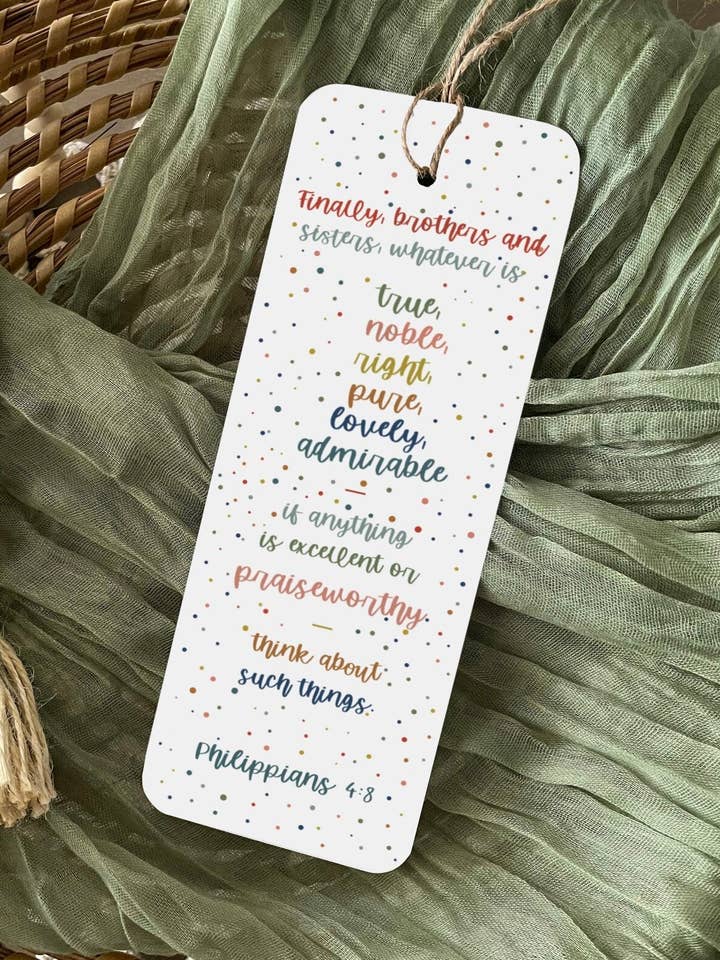 Finally, brothers and
sisters, whatever is
true,
noble,
right,
pure,
lovely,
admirable
—
if anything
is excellent or
praiseworthy
—
think about
such things.
Philippians 4:8